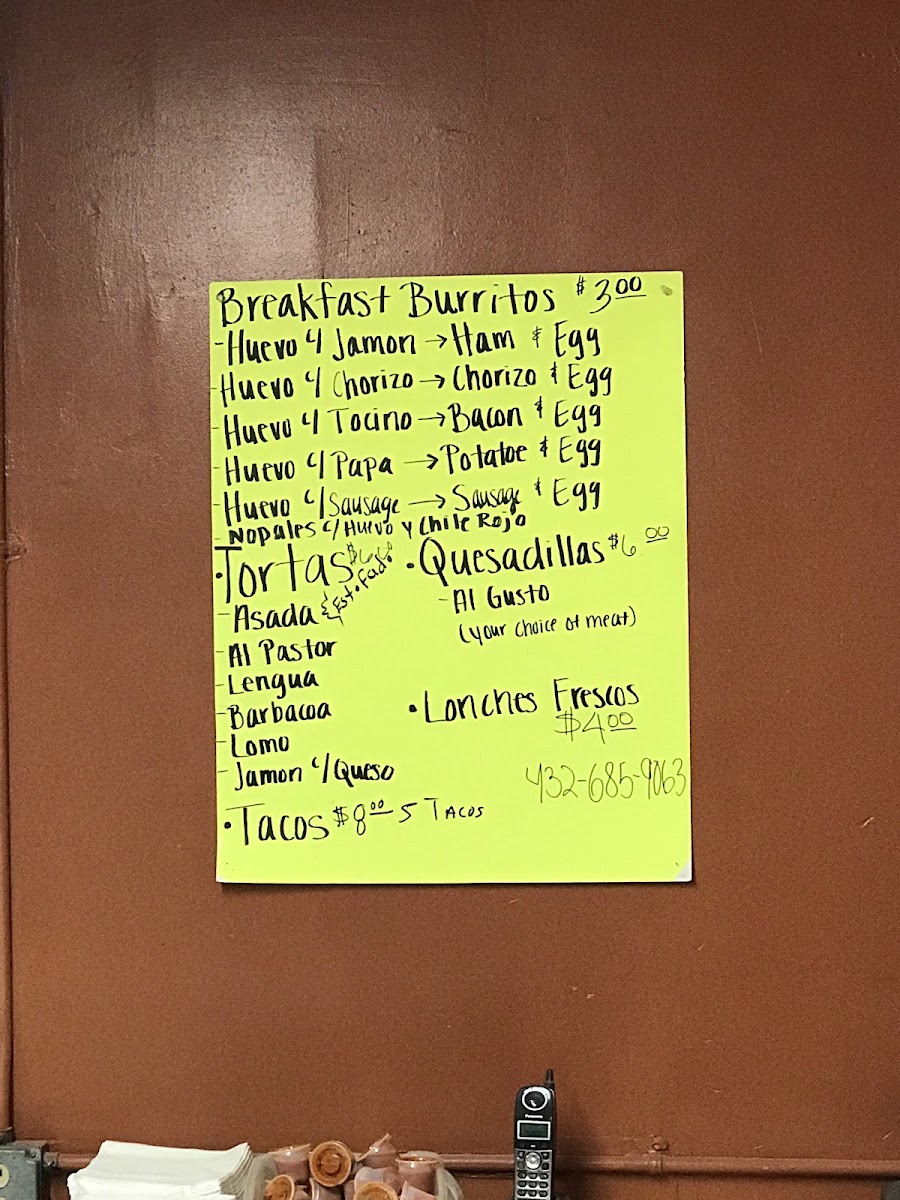 Breakfast Burritos $3.00
- Huevo c/ Jamon → Ham & Egg
- Huevo c/ Chorizo → Chorizo & Egg
- Huevo c/ Tocino → Bacon & Egg
- Huevo c/ Papa → Potatoe & Egg
- Huevo c/ Sausage → Sausage & Egg
- Nopales c/ Huevo y Chile Rojo
• Tortas $6.00
- Asada & Est.fada
- Al Pastor
- Lengua
- Barbacoa
- Lomo
- Jamon c/ Queso
• Quesadillas $6.00
- Al Gusto
(your choice of meat)
• Lonches Frescos
$4.00
432-685-9063
• Tacos $8.00 5 Tacos
Panasonic